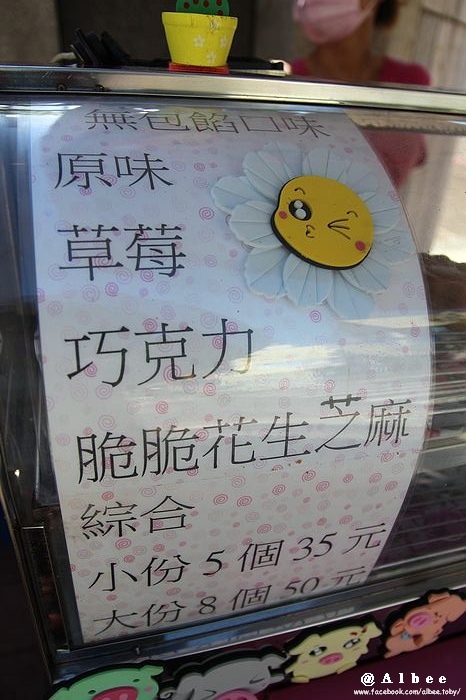 無包餡口味
原味
草莓
巧克力
脆脆花生芝麻
綜合
小份 5 個 35 元
大份 8 個 50 元
@Albee
www.facebook.com/albee.toby/